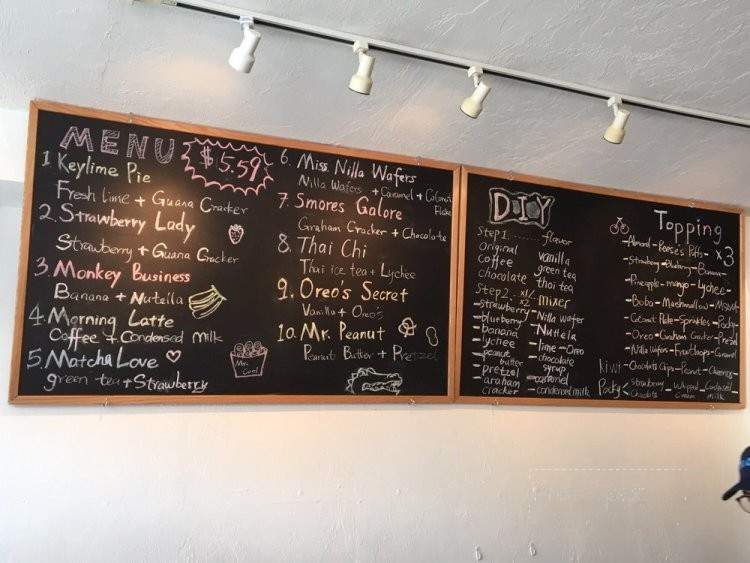 MENU
$5.59
1. Keylime Pie
Fresh lime + Guana Cracker
2. Strawberry Lady
Strawberry + Guana Cracker
3. Monkey Business
Banana + Nutella
4. Morning Latte
Coffee + Condensed milk
5. Matcha Love
green tea + Strawberry
Mr. Cool
6. Miss. Nilla Wafers
Nilla Wafers + Caramel + Coconut
Flake
7. Smores Galore
Graham Cracker + Chocolate
8. Thai Chi
Thai ice tea + Lychee
9. Oreo's Secret
Vanilla + Oreos
10. Mr. Peanut
Peanut Butter + Pretzel
DIY
Step 1...... flavor
original
coffee
chocolate
vanilla
green tea
thai tea
Step 2. x1/x2 mixer
- strawberry
- blueberry
- banana
- lychee
- peanut
butter
- pretzel
- graham
cracker
- Nilla wafer
- Nuttela
- lime - Oreo
- chocolate
syrup
- caramel
- condensed milk
Topping
x3
- Almond - Reese's Puffs -
- Strawberry - Blueberry - Banana -
- Pineapple - mango - Lychee -
- Boba - Marshmallow - M&M -
- Coconut Flake - Sprinkles - Pocky -
- Oreo - Graham Cracker - Pretzel
- Nilla wafers - Fruit loops - Caramel
kiwi - Chocolate Chips - Peanut -
Pocky < Strawberry Whipped Condensed
Chocolate cream milk